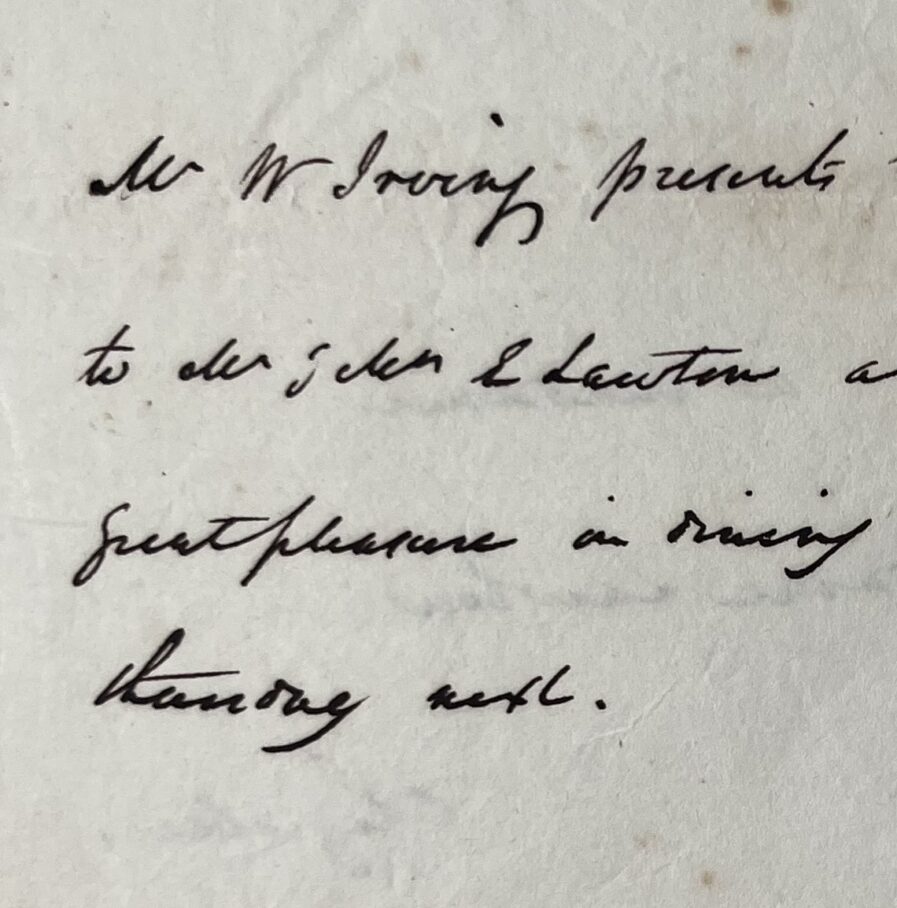 Mr W Irving presents
to Mr & Mrs E Lawton
great pleasure in dining
thursday next.